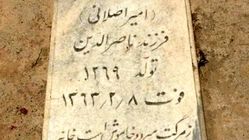 (امیر اصلانی)
فرزند ناصرالدین
تولد ۱۳۶۹
فوت ۱۳۶۳/۲/۸
از مرکت سرود خاموش است خانه